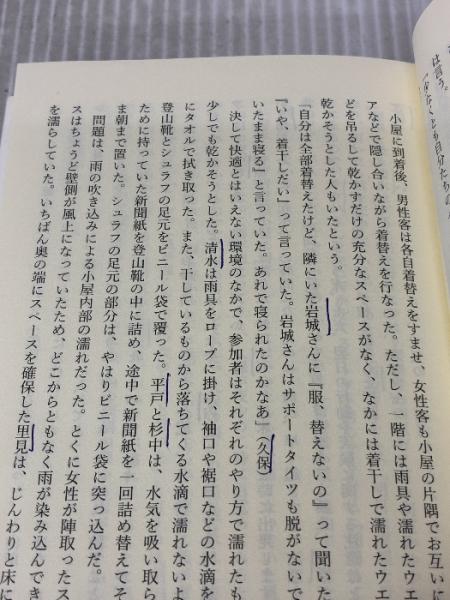 は言う。
小屋に到着後、男性客は各自着替えをすませ、女性客も小屋の片隅でお互いに
アなどで隠し合いながら着替えを行なった。ただし、一階には雨具や濡れたウエ
どを吊るして乾かすだけの充分なスペースがなく、なかには着干しで濡れたウエ
乾かそうとした人もいたという。
「自分は全部着替えたけど、隣にいた岩城さんに『服、替えないの』って聞いた
『いや、着干したい』って言っていた。岩城さんはサポートタイツも脱がないで
いたまま寝る』と言っていた。あれで寝られたのかなあ」（久保）
決して快適とはいえない環境のなかで、参加者はそれぞれのやり方で濡れたも
少しでも乾かそうとした。清水は雨具をロープに掛け、袖口や裾口などの水滴を
にタオルで拭き取った。また、干しているものから落ちてくる水滴で濡れないよ
登山靴とシュラフの足元をビニール袋で覆った。平戸と杉中は、水気を吸い取ら
ために持っていた新聞紙を登山靴の中に詰め、途中で新聞紙を一回詰め替えてそ
ま朝まで置いた。シュラフの足元の部分は、やはりビニール袋に突っ込んだ。
問題は、雨の吹き込みによる小屋内部の濡れだった。とくに女性が陣取ったス
スはちょうど壁側が風上になっていたため、どこからともなく雨が染み込んでき
を濡らしていた。いちばん奥の端にスペースを確保した里見は、じんわりと床に